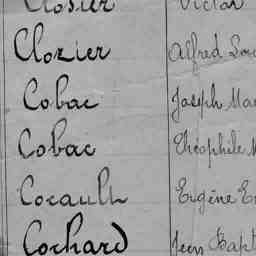 Closier Victor
Clozier Alfred
Cobac Joseph
Cobac Théophile
Cocault Eugène
Cochard Jean